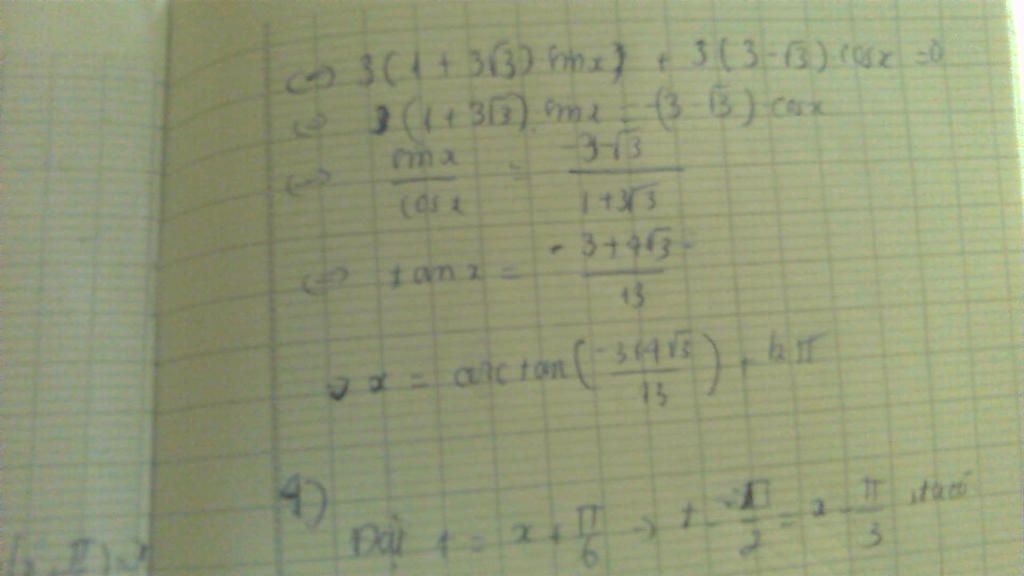 <=> 3(1 + 3√3) sinx + 3(3 - √3) cosx = 0
<=> (1 + 3√3) sinx = -(3 - √3) cosx
<=> sinx / cosx = -3-√3 / 1+3√3
<=> tanx = -3+4√3 / 13
x = arctan(-3+4√3 / 13) + kπ
4)
Đặt t = x + π/6 → t - π/2 = x - π/3